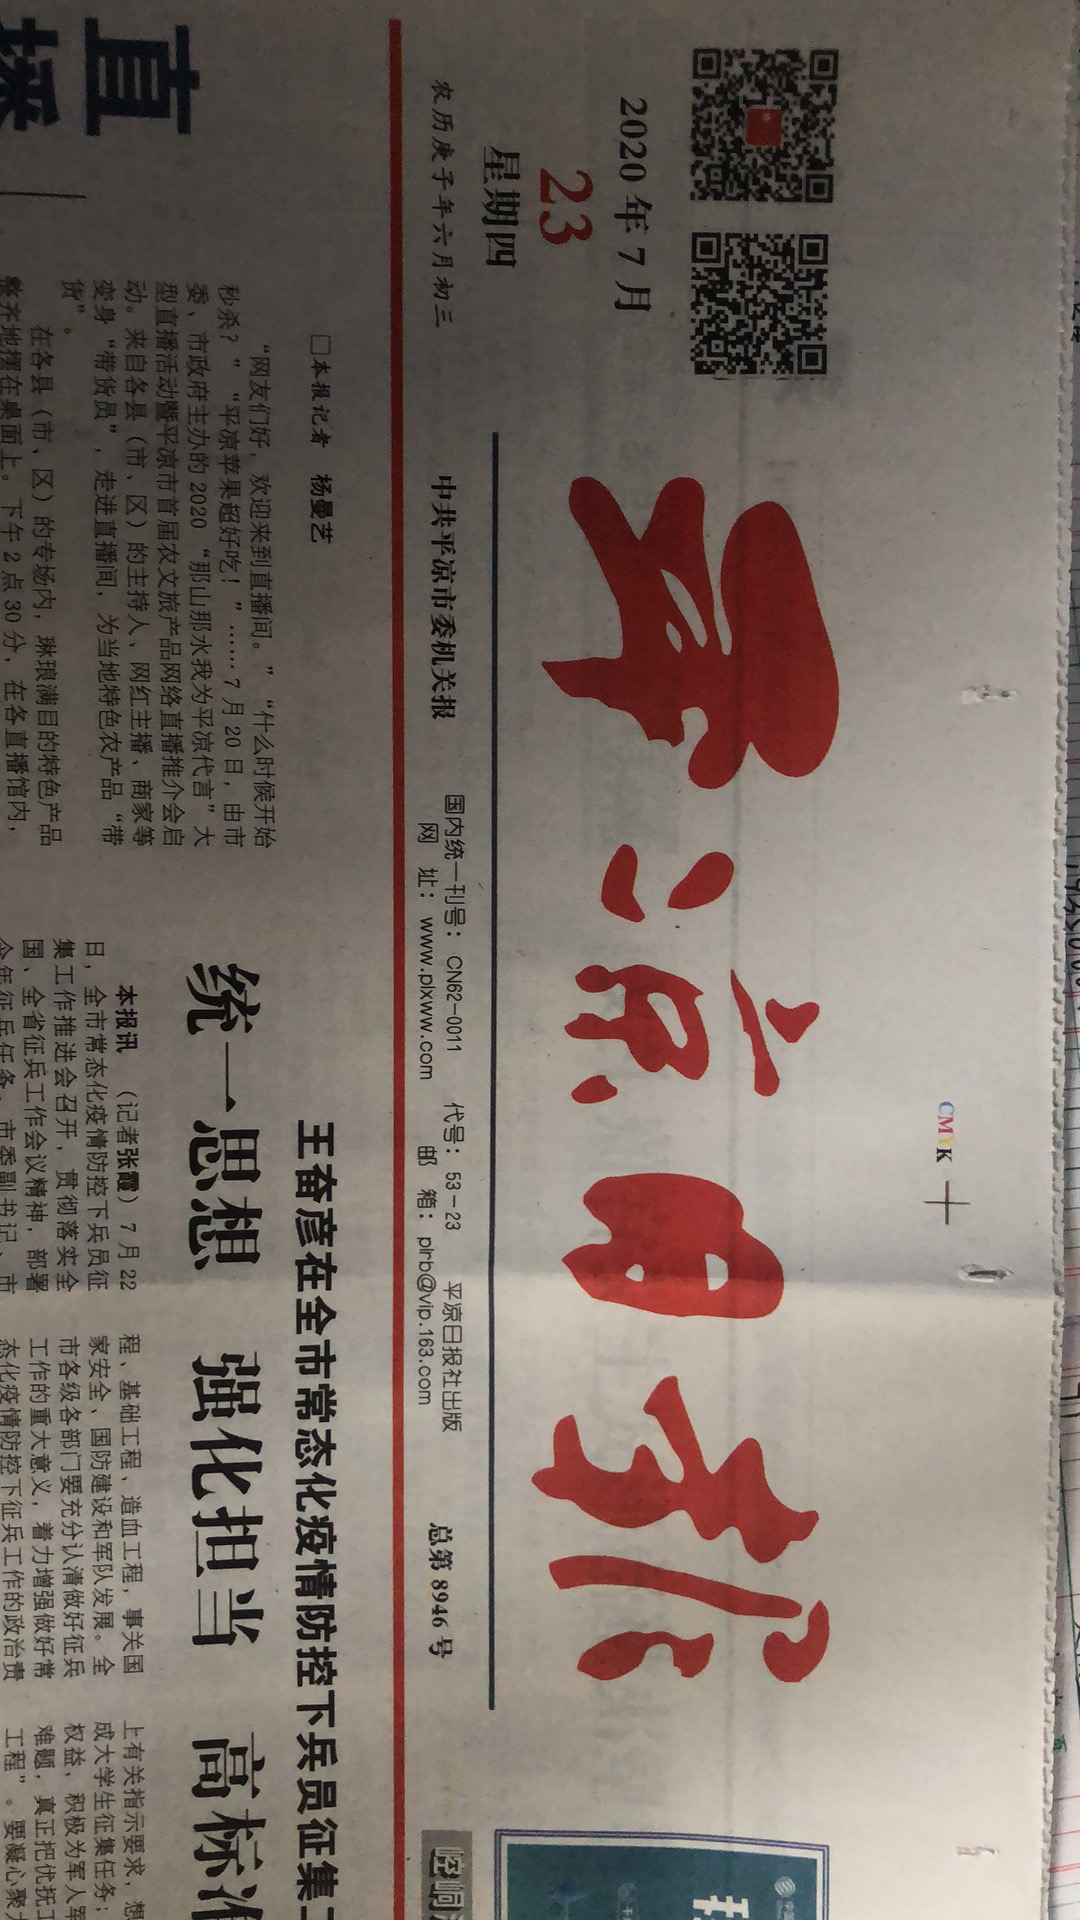 平凉日报
2020年7月
23
星期四
农历庚子年六月初三
CMYK
中共平凉市委机关报
国内统一刊号：CN62-0011 代号：53-23 平凉日报社出版
网 址：www.plxww.com 邮 箱：plrb@vip.163.com
总第8946号
崆峒
直
播
□本报记者 杨曼艺
“网友们好，欢迎来到直播间。”“什么时候开始
秒杀？”“平凉苹果超好吃！”……7月20日，由市
委、市政府主办的2020“那山那水我为平凉代言”大
型直播活动暨平凉市首届农文旅产品网络直播推介会启
动。来自各县（市、区）的主持人、网红主播、商家等
变身“带货员”，走进直播间，为当地特色农产品“带
货”。
在各县（市、区）的专场内，琳琅满目的特色产品
整齐地摆在桌面上。下午2点30分，在各直播馆内，
王奋彦在全市常态化疫情防控下兵员征集工
统一思想 强化担当 高标准
本报讯 （记者张霞）7月22
日，全市常态化疫情防控下兵员征
集工作推进会召开，贯彻落实全
国、全省征兵工作会议精神，部署
今年征兵任务。市委副书记、市
程、基础工程、造血工程，事关国
家安全、国防建设和军队发展。全
市各级各部门要充分认清做好征兵
工作的重大意义，着力增强做好常
态化疫情防控下征兵工作的政治责
上有关指示要求，想
成大学生征集任务；
权益，积极为军人军
难题，真正把优抚工
工程”。要凝心聚力